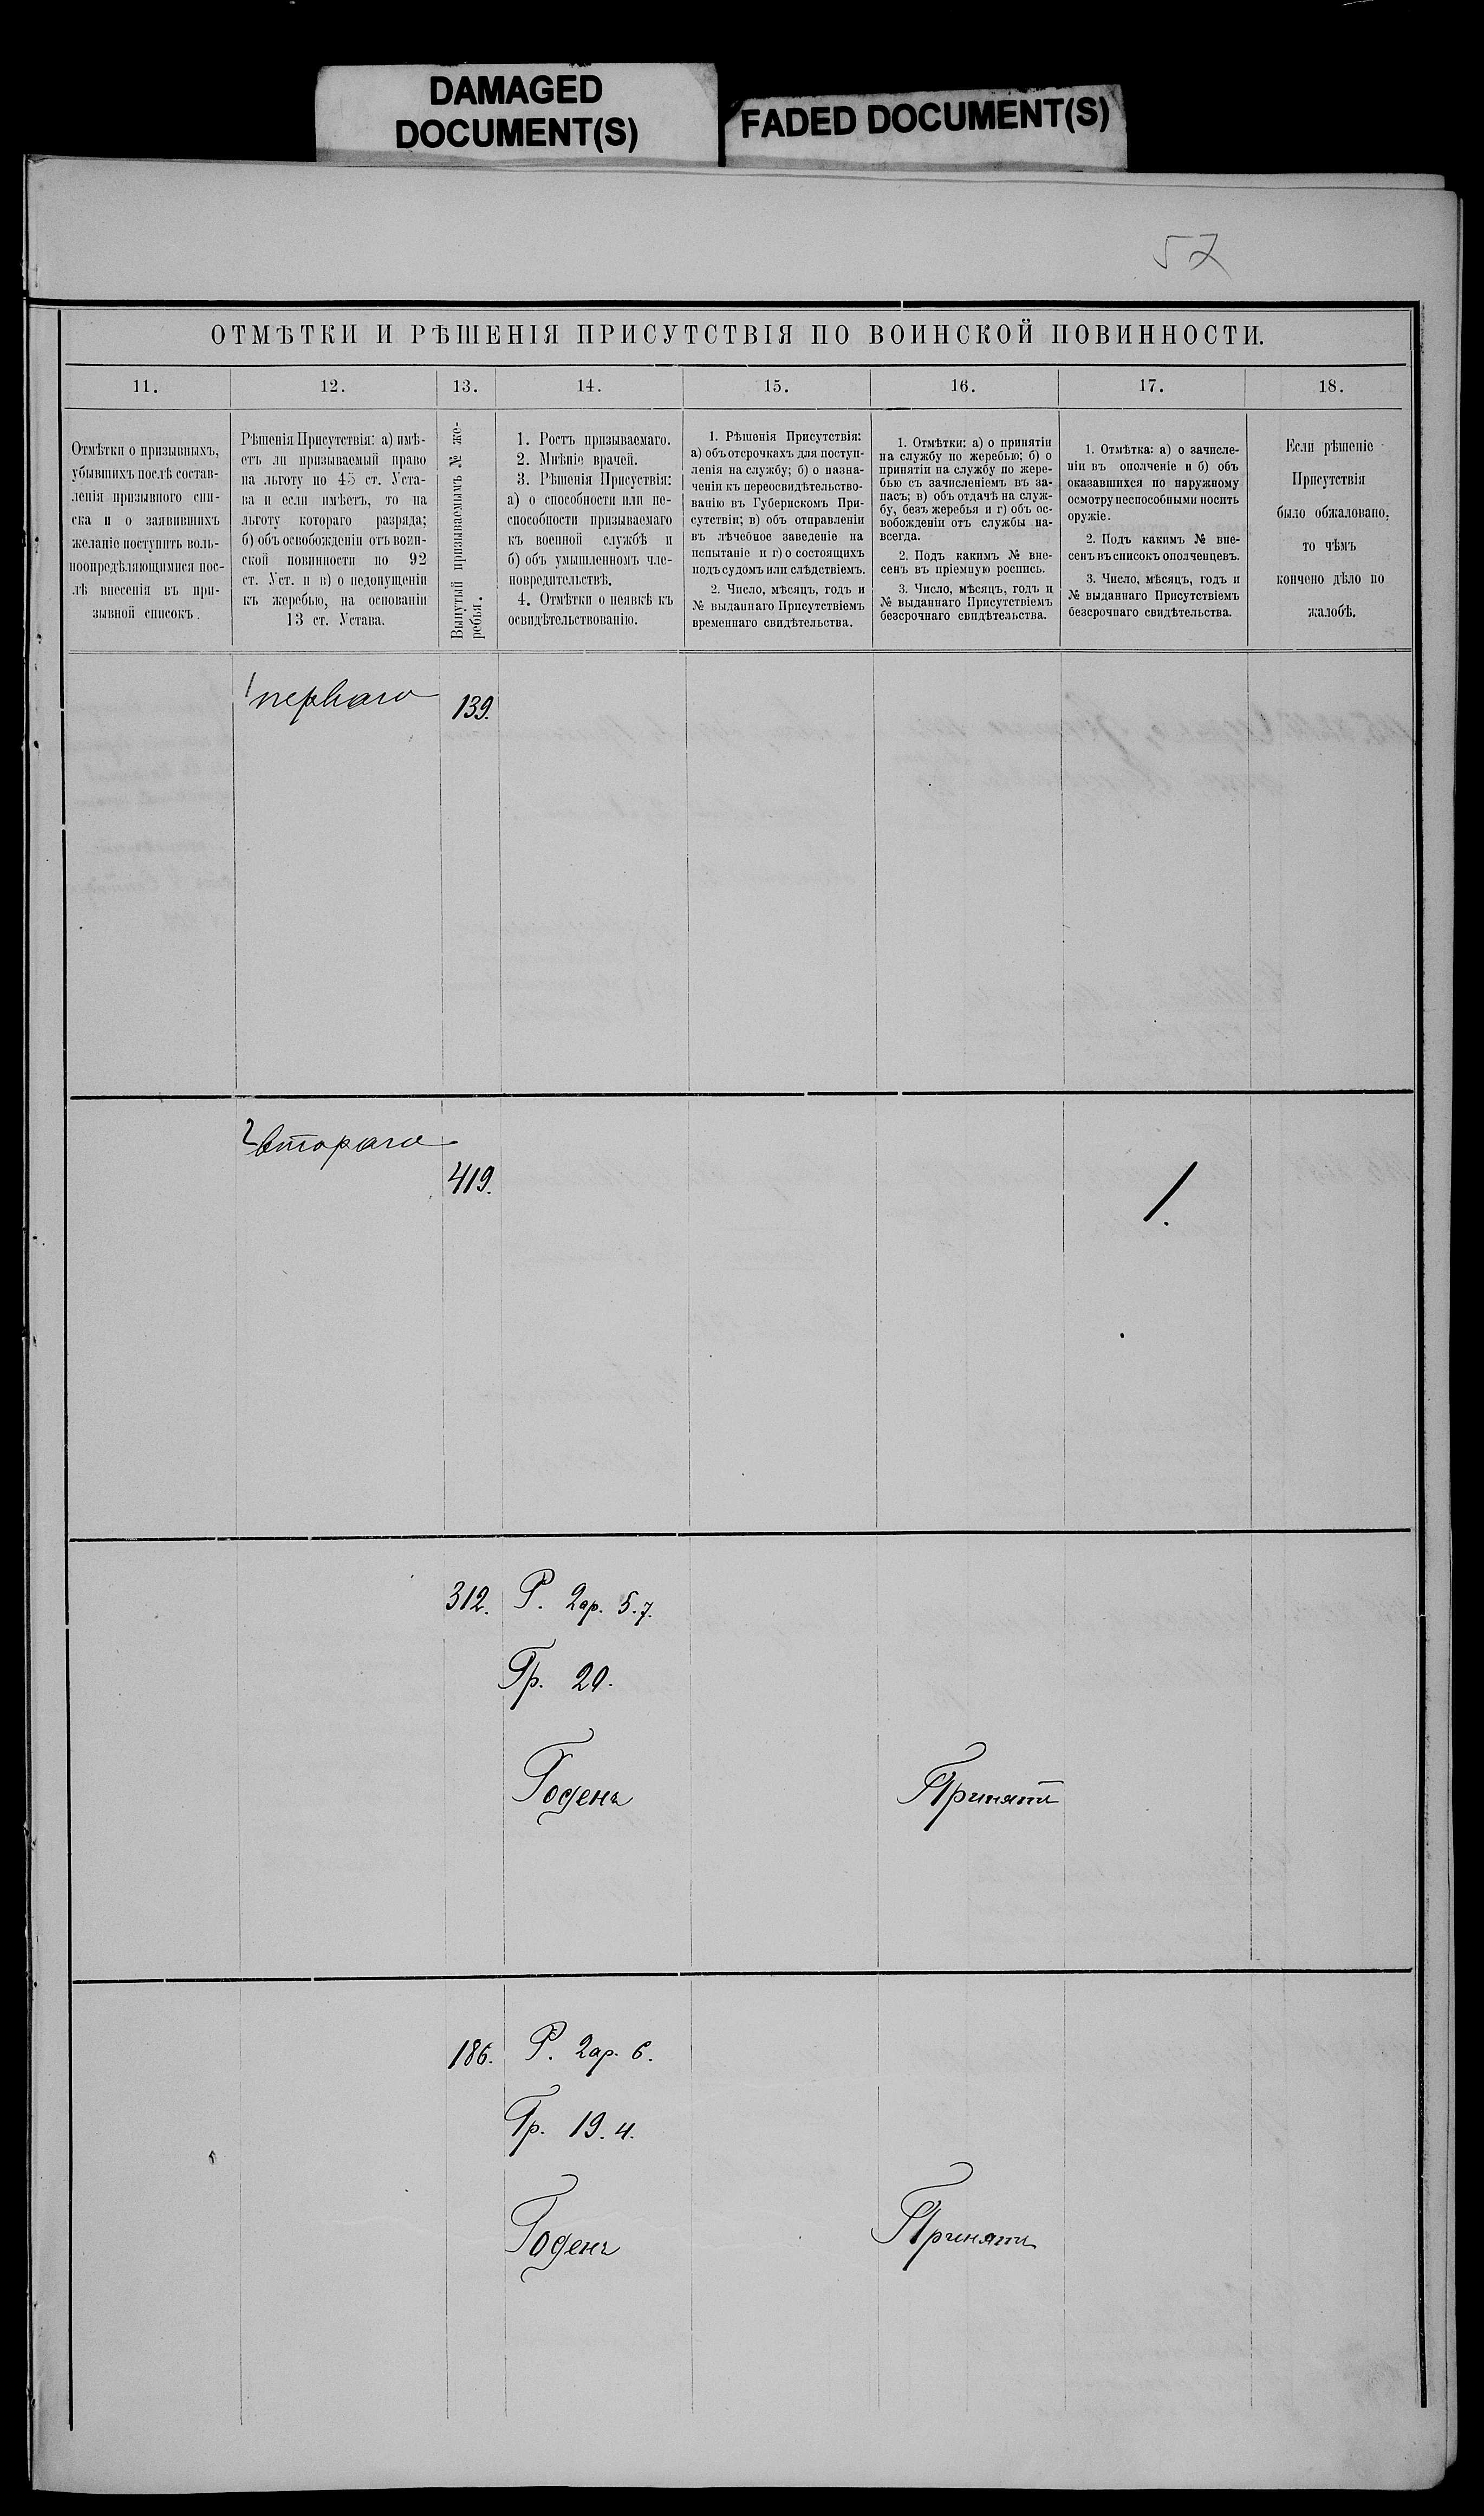 DAMAGED
DOCUMENT(S)
FADED DOCUMENT(S)
57
ОТМѢТКИ И РѢШЕНІЯ ПРИСУТСТВІЯ ПО ВОИНСКОЙ ПОВИННОСТИ.
11.
12.
13.
14.
15.
16.
17.
18.
Отмѣтки о призывныхъ,
убывшихъ послѣ состав-
ленія призывного спи-
ска и о заявившихъ
желаніе поступить воль-
ноопредѣляющимися пос-
лѣ внесенія въ при-
зывной списокъ.
Рѣшенія Присутствія: а) имѣ-
етъ ли призываемый право
на льготу по 45 ст. Уста-
ва и если имѣетъ, то на
льготу котораго разряда;
б) объ освобожденіи отъ воин-
ской повинности по 92
ст. Уст. и в) о недопущеніи
къ жеребью, на основаніи
13 ст. Устава.
Вынутый призываемымъ № же-
ребья.
1. Ростъ призываемаго.
2. Мнѣніе врачей.
3. Рѣшенія Присуствія:
а) о способности или не-
способности призываемаго
къ военной службѣ и
б) объ умышленномъ чле-
новредительствѣ.
4. Отмѣтки о неявкѣ къ
освидѣтельствованію.
1. Рѣшенія Присутствія:
а) объ отсрочкахъ для поступ-
ленія на службу; б) о назна-
ченіи къ переосвидѣтельство-
ванію въ Губернскомъ При-
сутствіи; в) объ отправленіи
въ лѣчебное заведеніе на
испытаніе и г) о состоящихъ
подъ судомъ или слѣдствіемъ.
2. Число, мѣсяцъ, годъ и
№ выданнаго Присутствіемъ
временнаго свидѣтельства.
1. Отмѣтки: а) о принятіи
на службу по жеребью; б) о
принятіи на службу по жере-
бью съ зачисленіемъ въ за-
пасъ; в) объ отдачѣ на служ-
бу, безъ жеребья и г) объ ос-
вобожденіи отъ службы на-
всегда.
2. Подъ какимъ № вне-
сенъ въ пріемную роспись.
3. Число, мѣсяцъ, годъ и
№ выданнаго Присутствіемъ
безсрочнаго свидѣтельства.
1. Отмѣтка: а) о зачисле-
ніи въ ополченіе и б) объ
оказавшихся по наружному
осмотру неспособными носить
оружіе.
2. Подъ какимъ № вне-
сенъ въ списокъ ополченцевъ.
3. Число, мѣсяцъ, годъ и
№ выданнаго Присутствіемъ
безсрочнаго свидѣтельства.
Если рѣшеніе
Присутствія
было обжаловано,
то чѣмъ
кончено дѣло по
жалобѣ.
1 перваго
139.
2 втораго
419.
1.
312. Р. 2ар. 5.7.
Гр. 20.
Годенъ
Принятъ
186. Р. 2ар. 6.
Гр. 19.4.
Годенъ
Принятъ